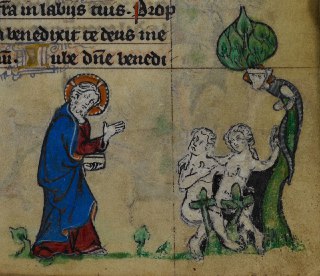 ta in labijs tuis. Prop
benedixit te deus in e
ube dñe benedi